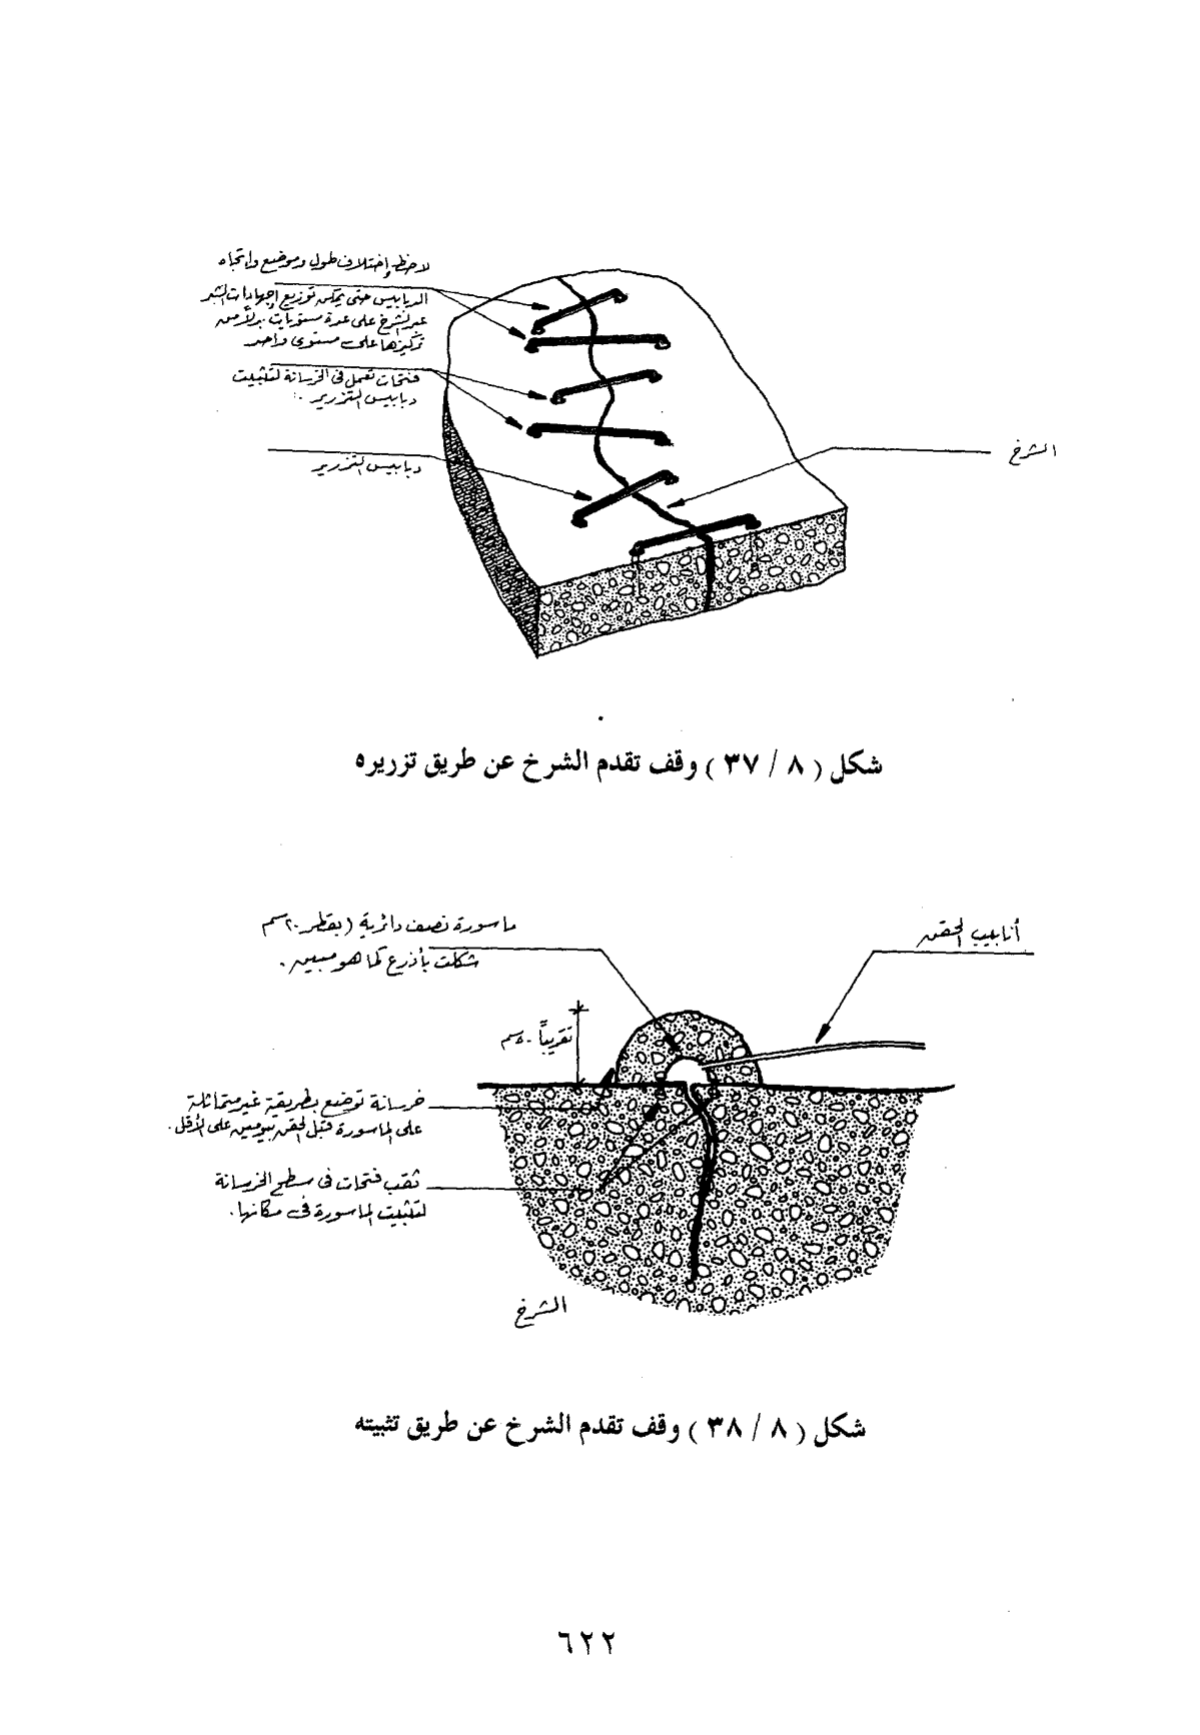 لاحظ إختلاف طول وموضع واتجاه
الدبابيس حتى يمكن توزيع إجهادات الشد
عبر الشرخ على عدة مستويات بدلاً من
تركيزها على مستوى واحد
فتحات تعمل فى الخرسانة لتثبيت
دبابيس التزرير .
دبابيس التزرير
الشرخ
شكل ( ٨ / ٣٧ ) وقف تقدم الشرخ عن طريق تزريره
ماسورة نصف دائرية ( بقطر ٢٠سم
شكلت بأذرع كما هو مبين .
أنابيب الحقن
تقريباً ٥٠سم
خرسانة توضع بطريقة غير متماثلة
على الماسورة قبل الحقن بيومين على الأقل .
ثقب فتحات فى سطح الخرسانة
لتثبيت الماسورة فى مكانها .
الشرخ
شكل ( ٨ / ٣٨ ) وقف تقدم الشرخ عن طريق تثبيته
٦٢٢